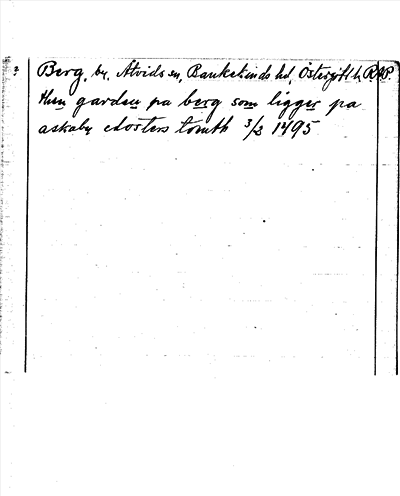 Berg, by, Atvids sn, Bankekinds hd, Östergötl. RAP.
then garden pa berg som ligger pa
askaby closters tomth 3/3 1495